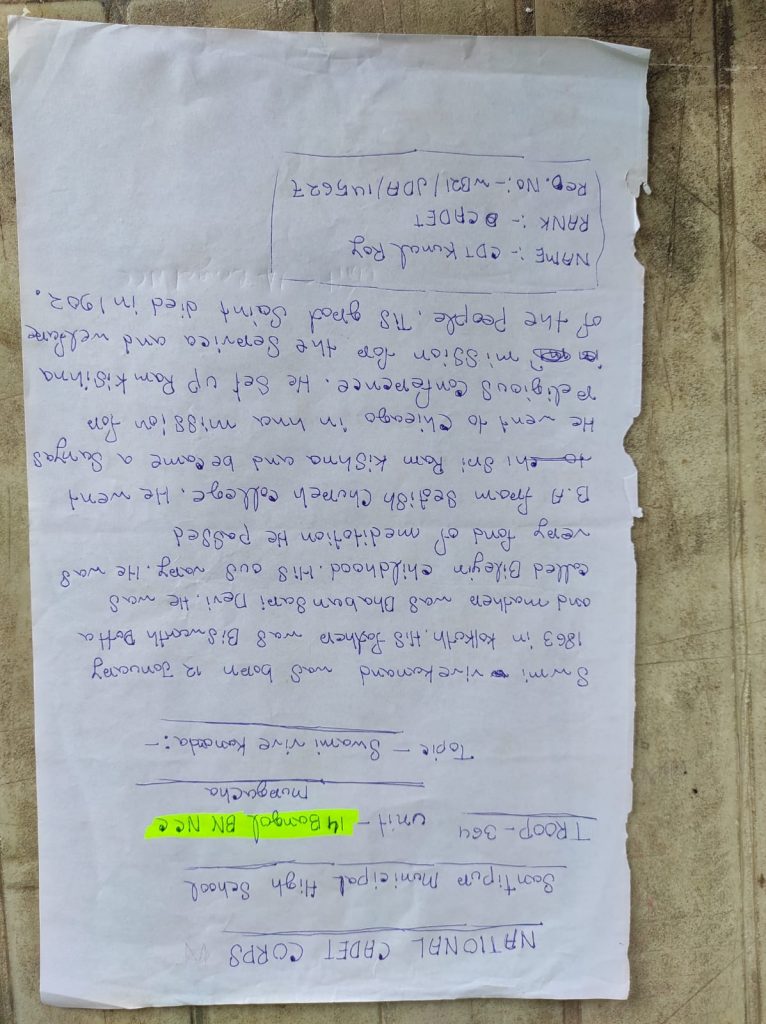 NATIONAL CADET CORPS
Santipur Municipal High School
TROOP - 364 unit - 14 Bangal BN NCC
Murgacha
Topic - Swami vive Kanaada :-
Swmi vivekanand was born 12 January
1863 in kolkath. His father was Biswanth Datta
and mather was Bhabunsari Devi. He was
called Bileyin childhood. His ous vary. He was
very fond of meditation He passed
B.A from Sedish Church College. He went
to chi Sri Ram Kishna and became a Sanyas
He went to Chicago in hna mission for
religious Conference. He set up Ramkishna
mission for the Service and welfare
of the people. This great Saint died in 1902.
NAME :- CDT Kunal Roy
RANK :- CADET
REG. No:- WB21/JDA/145627